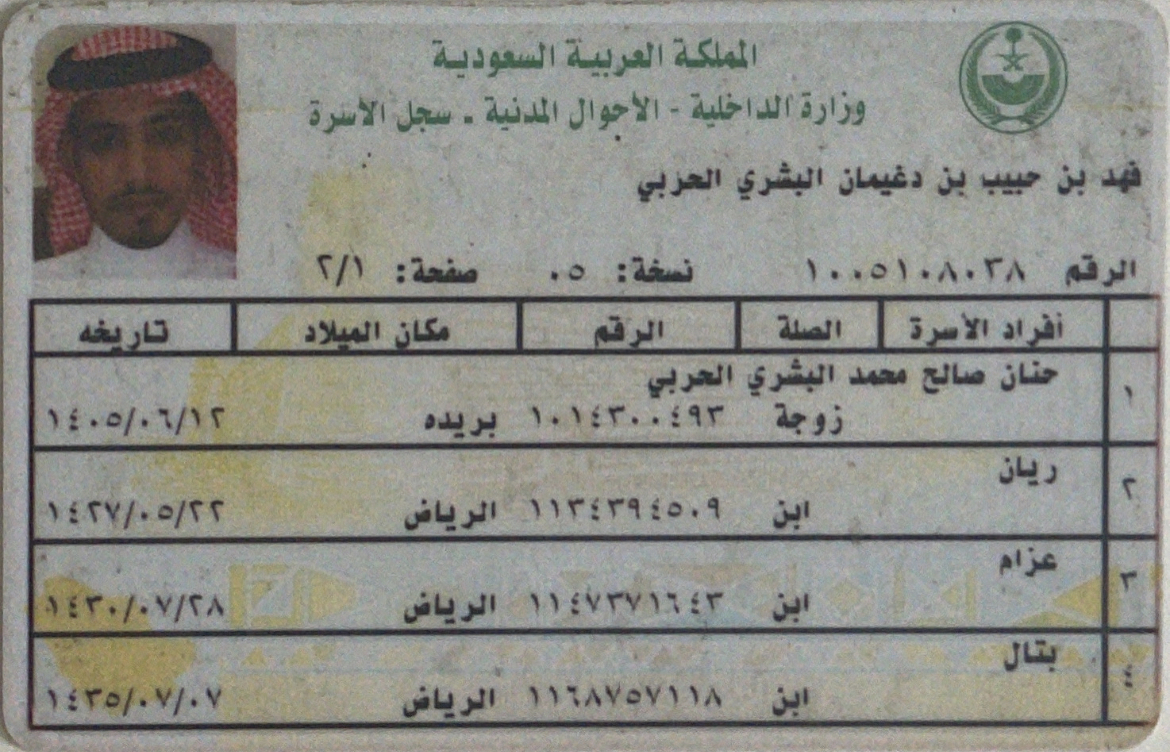 المملكة العربية السعودية
وزارة الداخلية - الأحوال المدنية - سجل الأسرة
فهد بن حبيب بن دغيمان البشري الحربي
الرقم ١٠٠٥١٠٨٠٣٨ نسخة: ٠٥ صفحة: ٢/١
أفراد الأسرة الصلة الرقم مكان الميلاد تاريخه
١ حنان صالح محمد البشري الحربي
زوجة ١٠١٤٣٠٠٤٩٣ بريده ١٤٠٥/٠٦/١٢
٢ ريان
ابن ١١٣٤٣٩٤٥٠٩ الرياض ١٤٢٧/٠٥/٢٢
٣ عزام
ابن ١١٤٧٣٧١٦٤٣ الرياض ١٤٣٠/٠٧/٢٨
٤ بتال
ابن ١١٦٨٧٥٧١١٨ الرياض ١٤٣٥/٠٧/٠٧